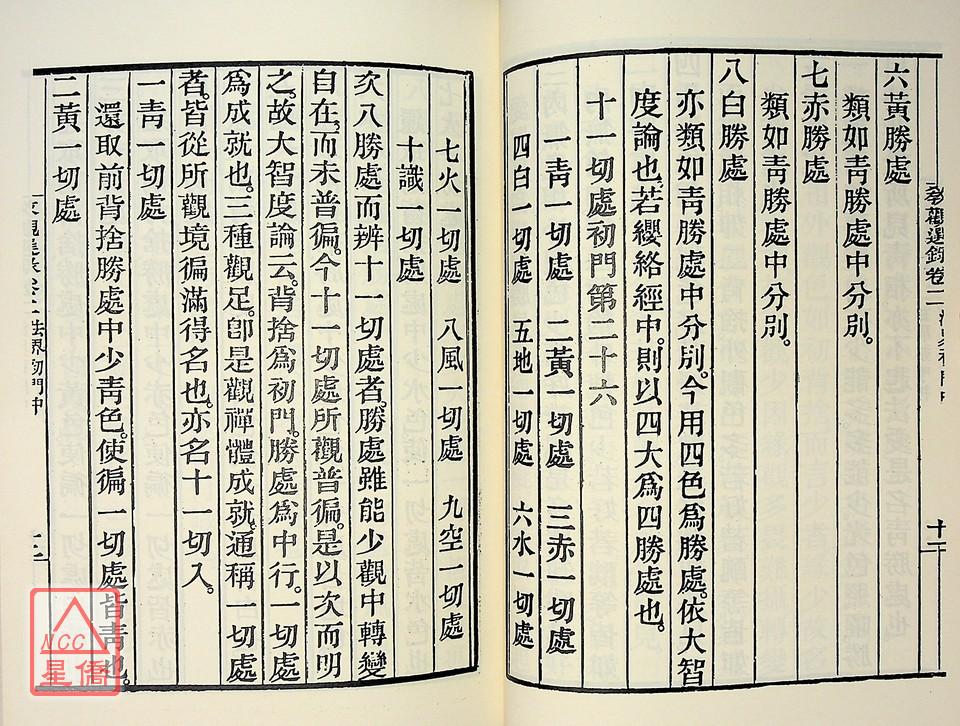 六黃勝處
類如靑勝處中分別。
七赤勝處
類如靑勝處中分別。
八白勝處
亦類如靑勝處中分別。今用四色爲勝處。依大智
度論也。若纓絡經中。則以四大爲四勝處也。
十一切處初門第二十六
一靑一切處 二黃一切處 三赤一切處
四白一切處 五地一切處 六水一切處
敎觀選錄卷二
七火一切處 八風一切處 九空一切處
十識一切處
次八勝處而辨十一切處者。勝處雖能少觀中轉變
自在。而未普徧。今十一切處所觀普徧。是以次而明
之。故大智度論云。背捨爲初門。勝處爲中行。一切處
爲成就也。三種觀足。卽是觀禪體成就。通稱一切處
者。皆從所觀境徧滿得名也。亦名十一切入。
一靑一切處
還取前背捨勝處中少靑色。使徧一切處皆靑也。
二黃一切處
法界初門中
NCC
星僑